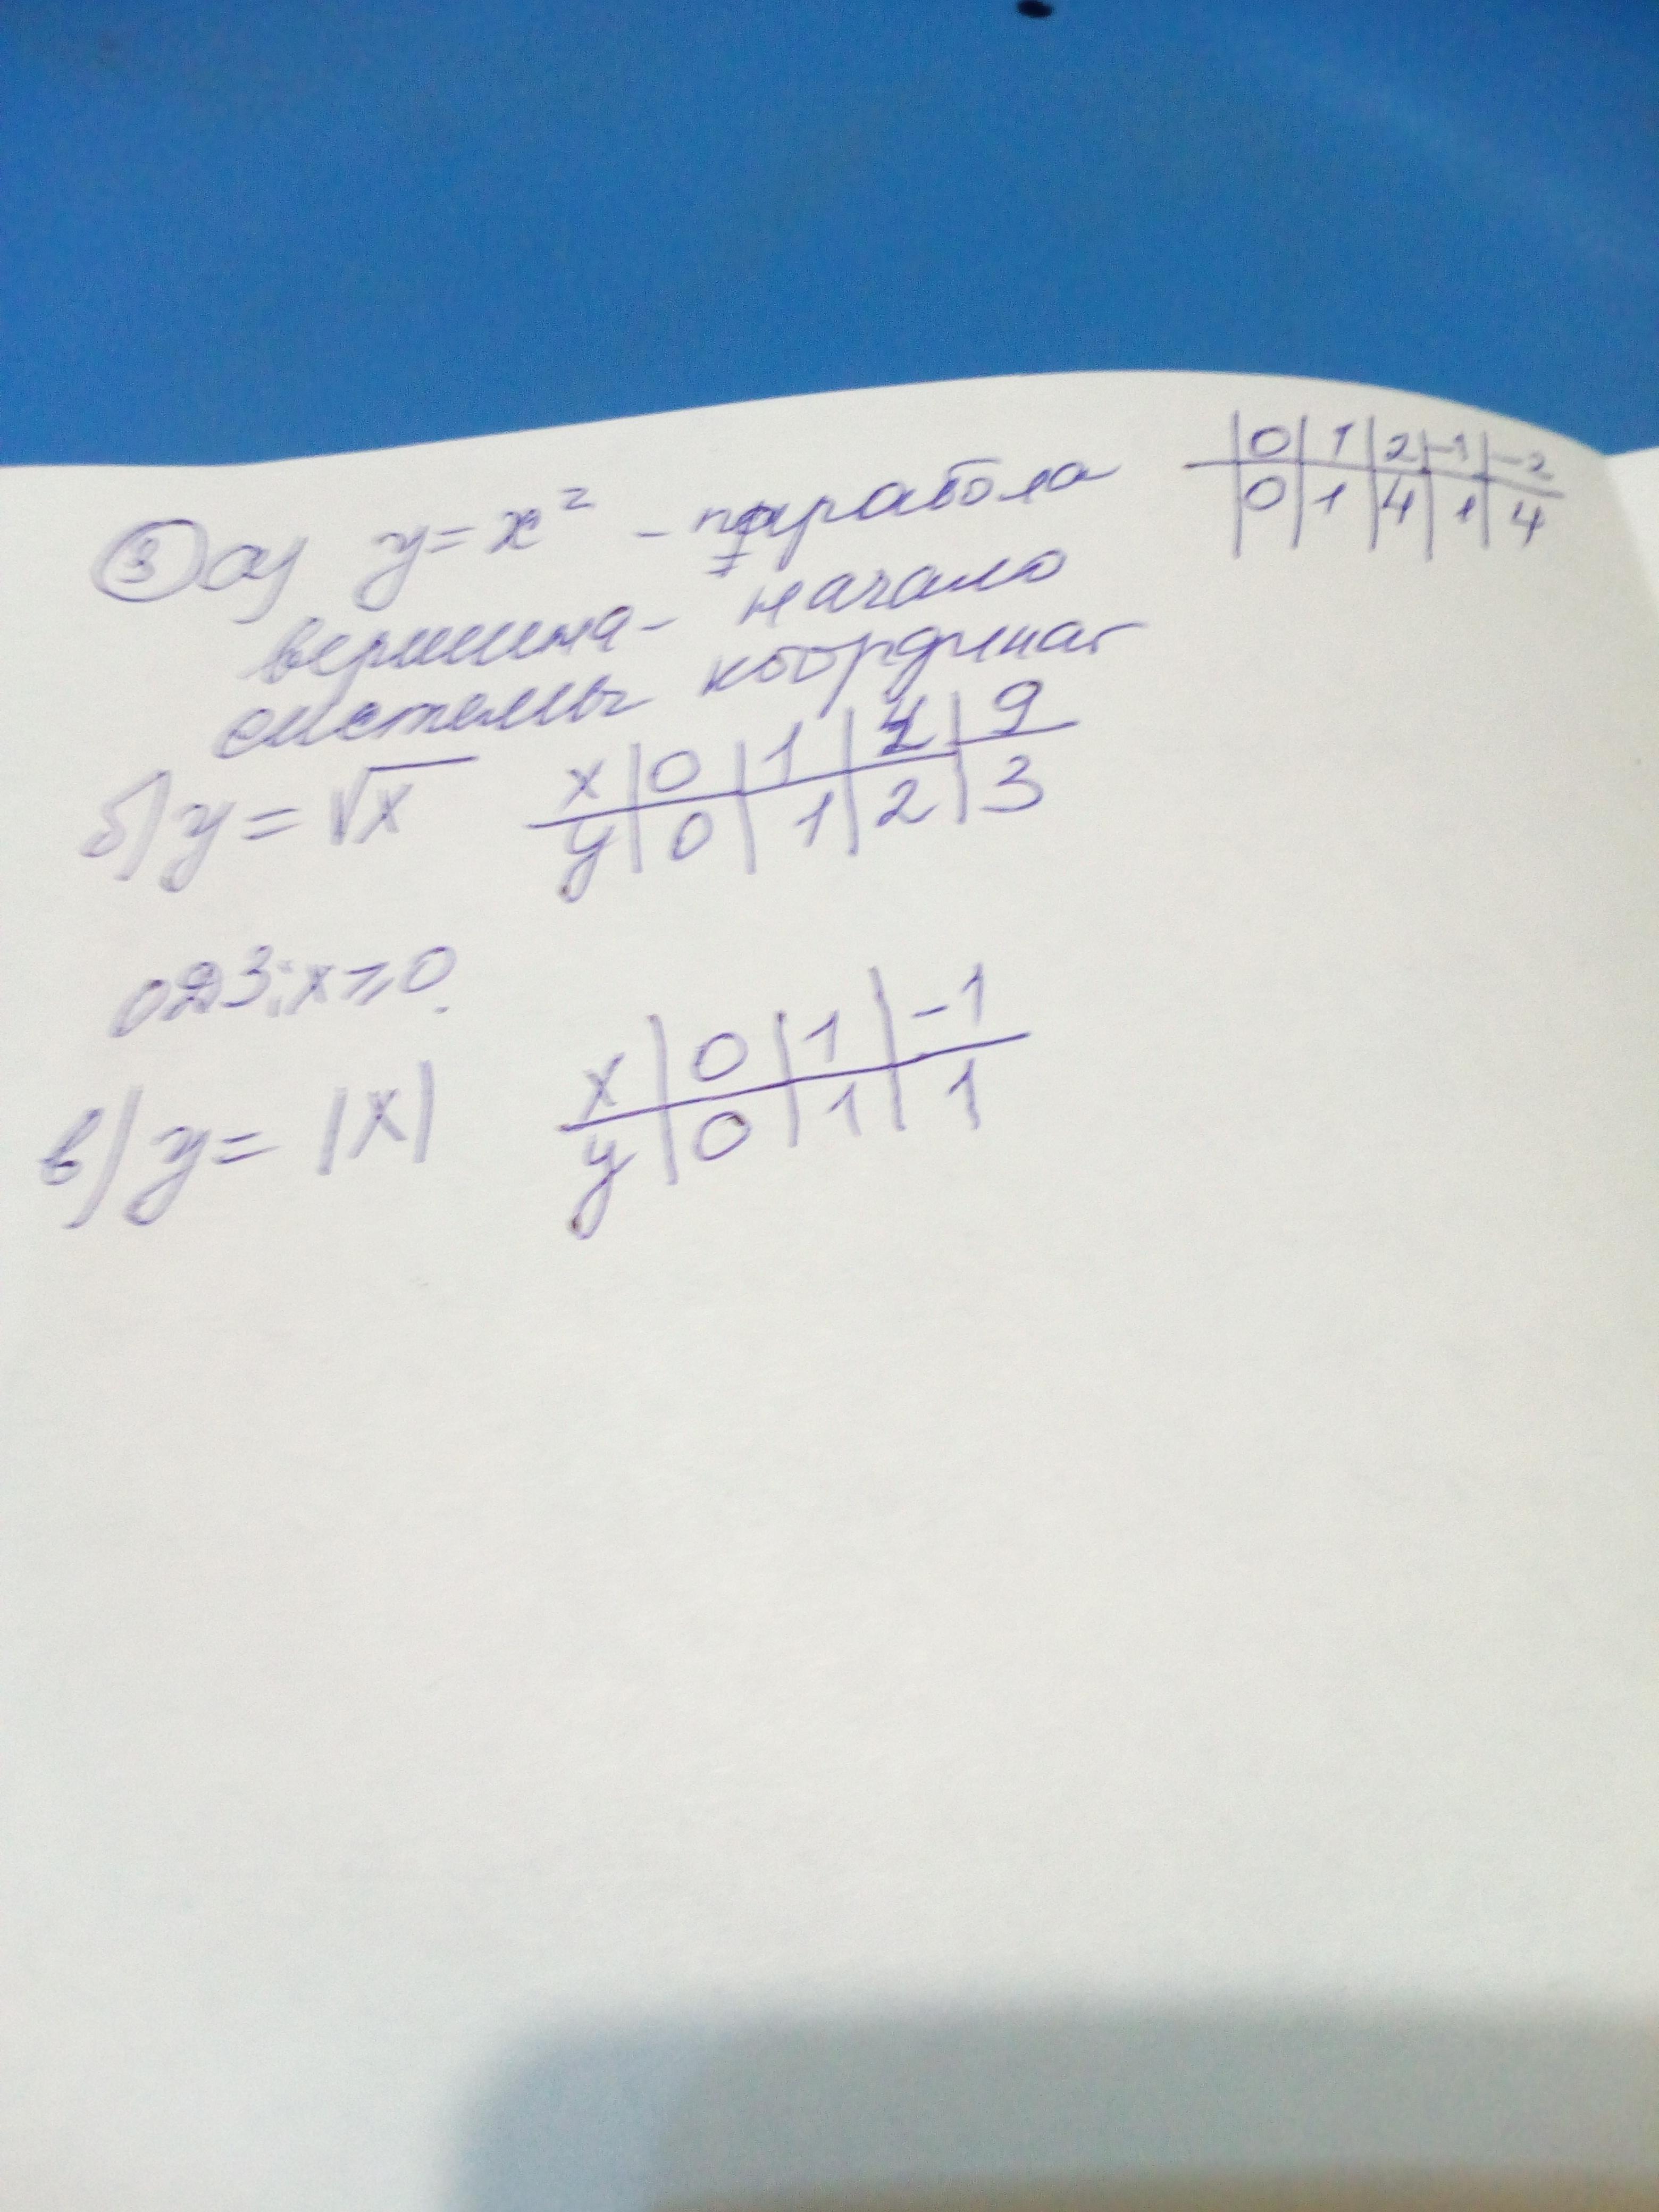 ③ а) y = x² – парабола | 0 | 1 | 2 | -1 | -2
0 | 1 | 4 | 1 | 4
вершина - начало
системы координат
б) y = √x x | 0 | 1 | 4 | 9
y | 0 | 1 | 2 | 3
ОДЗ: x ≥ 0.
в) y = |x| x | 0 | 1 | -1
y | 0 | 1 | 1